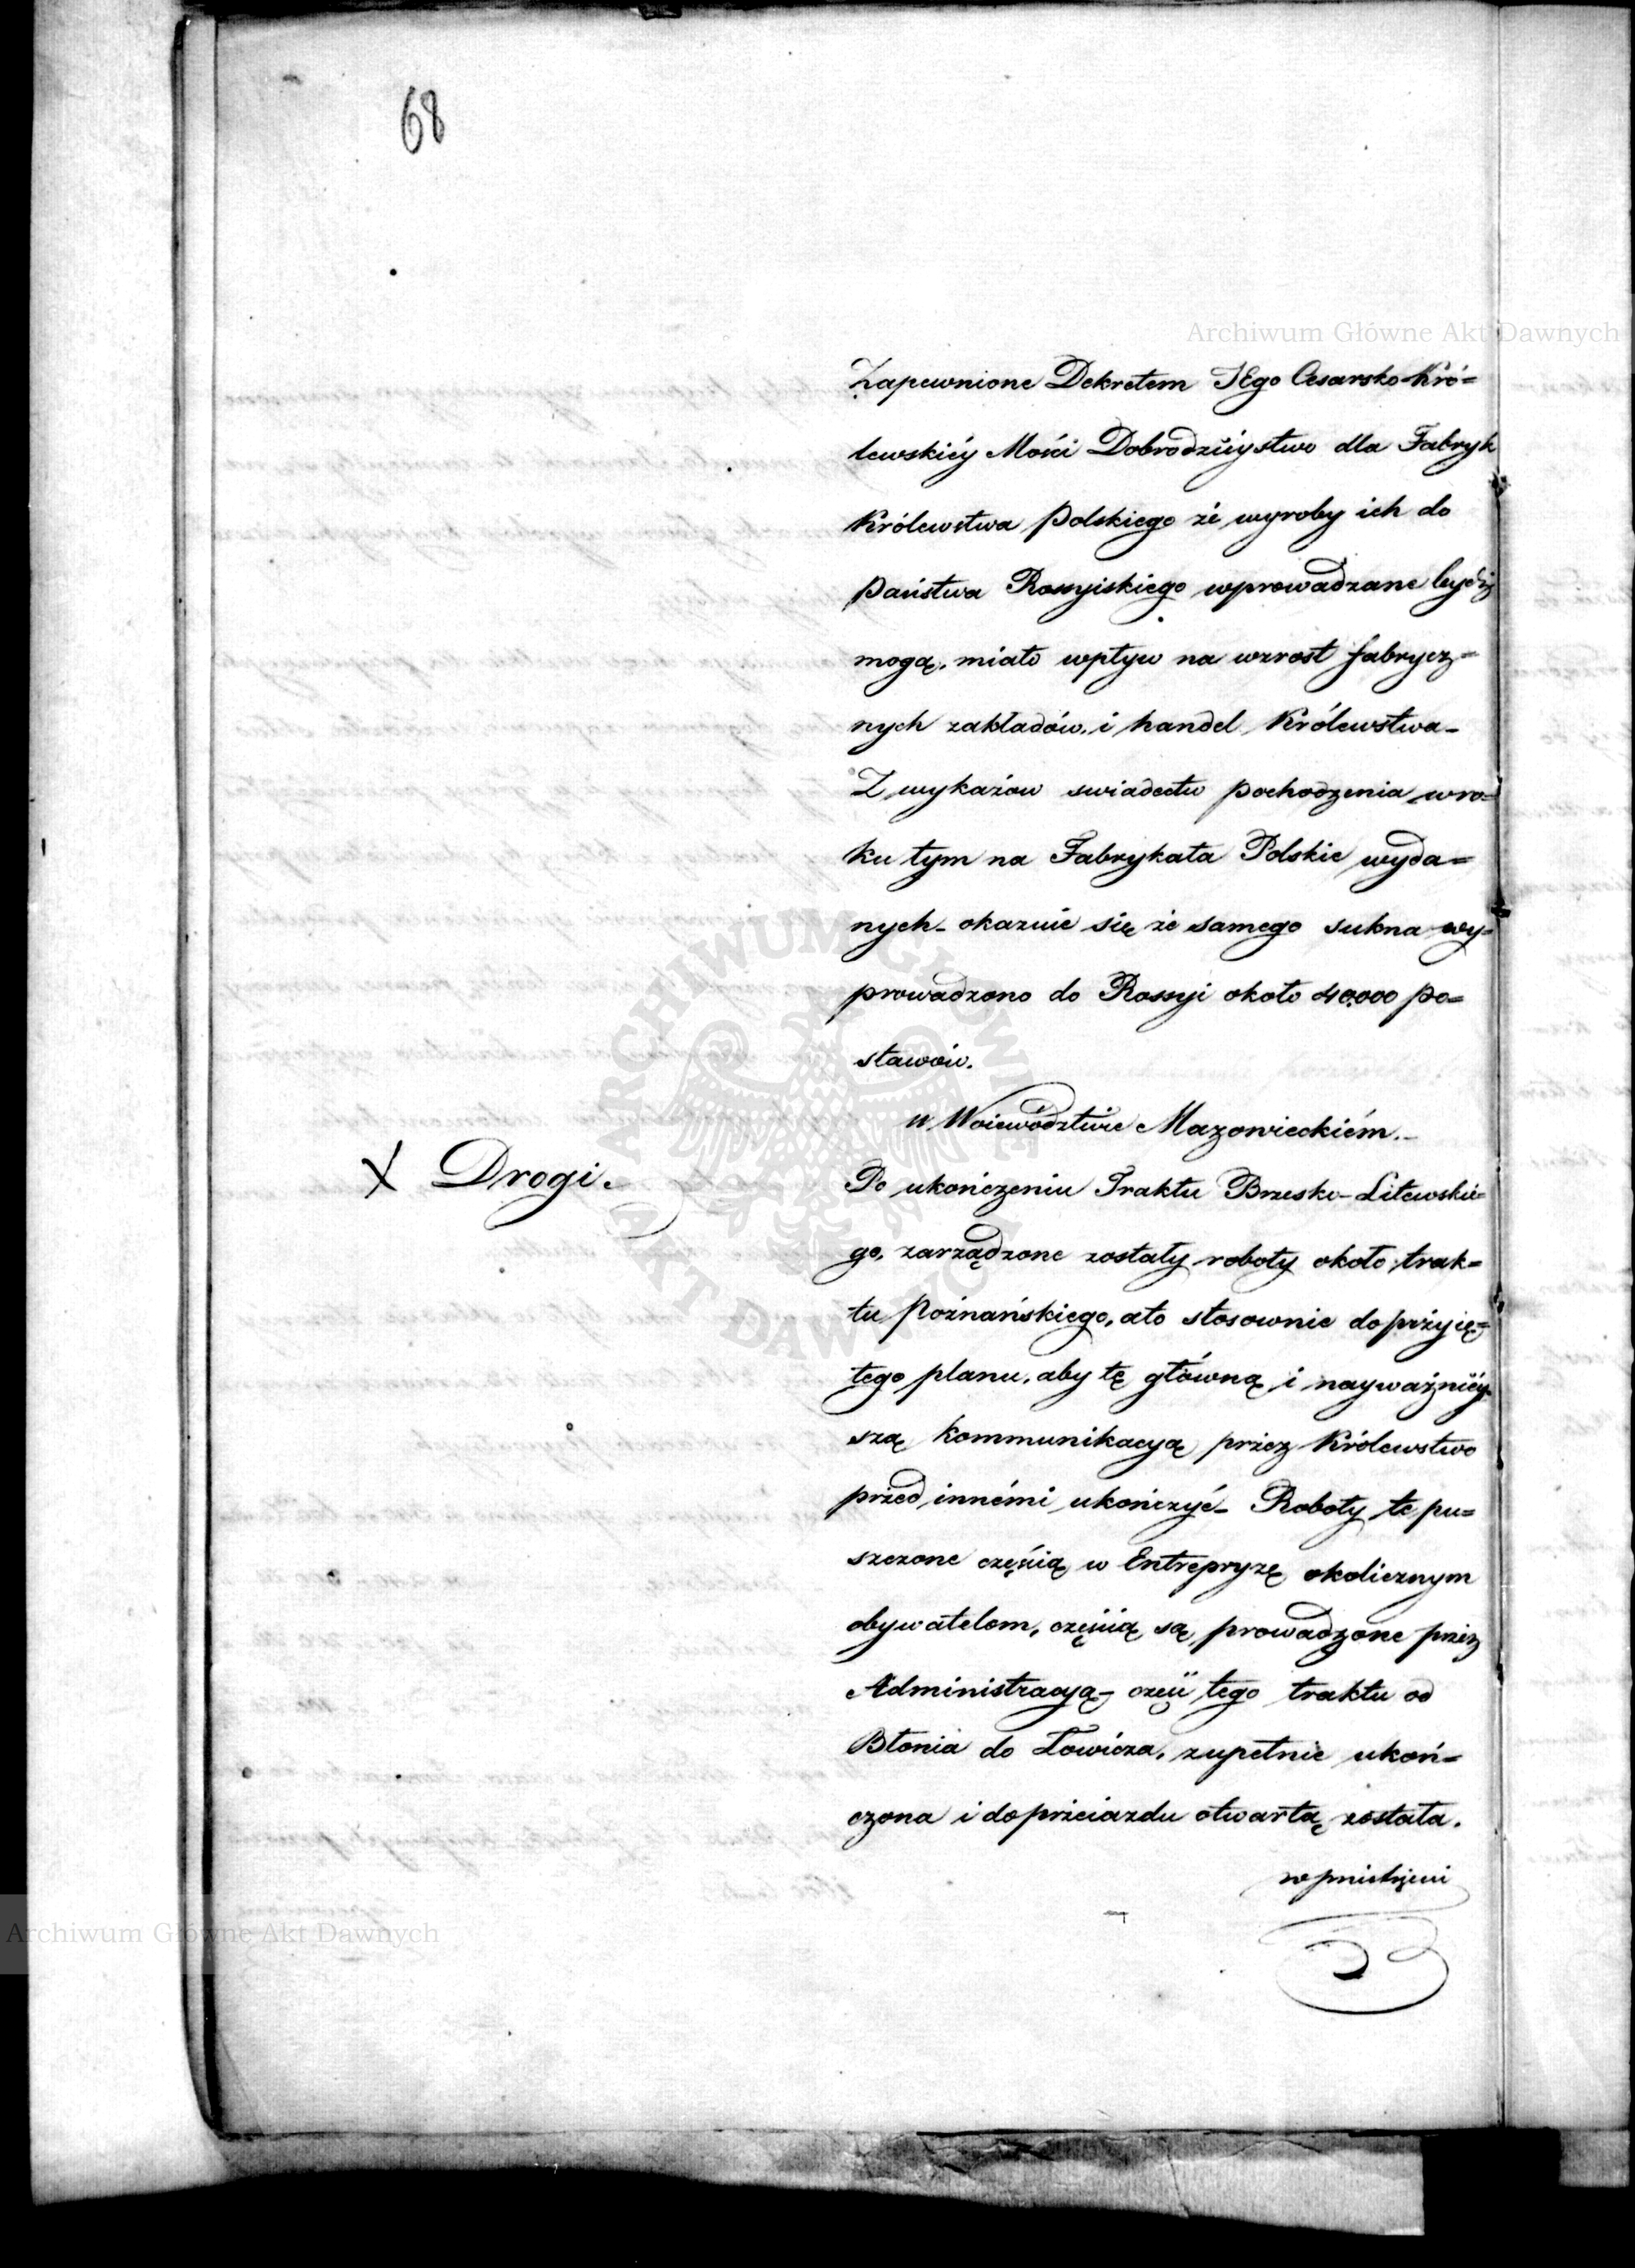 68
Archiwum Główne Akt Dawnych
Zapewnione Dekretem JEgo Cesarsko-Kró=
lewskiéy Mości Dobrodzieystwo dla Fabryk
Królewstwa Polskiego że wyroby ich do
Państwa Rossyiskiego wprowadzane bydź
mogą, miało wpływ na wzrost fabrycz=
nych zakładów, i handel Królewstwa_
Z wykazów swiadectw pochodzenia w ro=
ku tym na Fabrykata Polskie wyda=
nych_ okazuie się że samego sukna wy=
prowadzono do Rossyi około 40,000 po=
stawów.
w Woiewództwie Mazowieckiém._
X Drogi.
Po ukończeniu Traktu Brzesko-Litewskie=
go, zarządzone zostały roboty około trak=
tu Poznańskiego, a to stosownie do przyię=
tego planu, aby tę główną i nayważniéy
szą kommunikacyą przez Królewstwo
przed innémi ukończyć_ Roboty te pu=
szczone częścią w Entrepryzę okolicznym
obywatelom, częścią są prowadzone przez
Administracyą_ część tego traktu od
Błonia do Łowicza, zupełnie ukoń=
czona i do przeiazdu otwartą została.
ARCHIWUM GŁÓWNE AKT DAWNYCH
Archiwum Główne Akt Dawnych